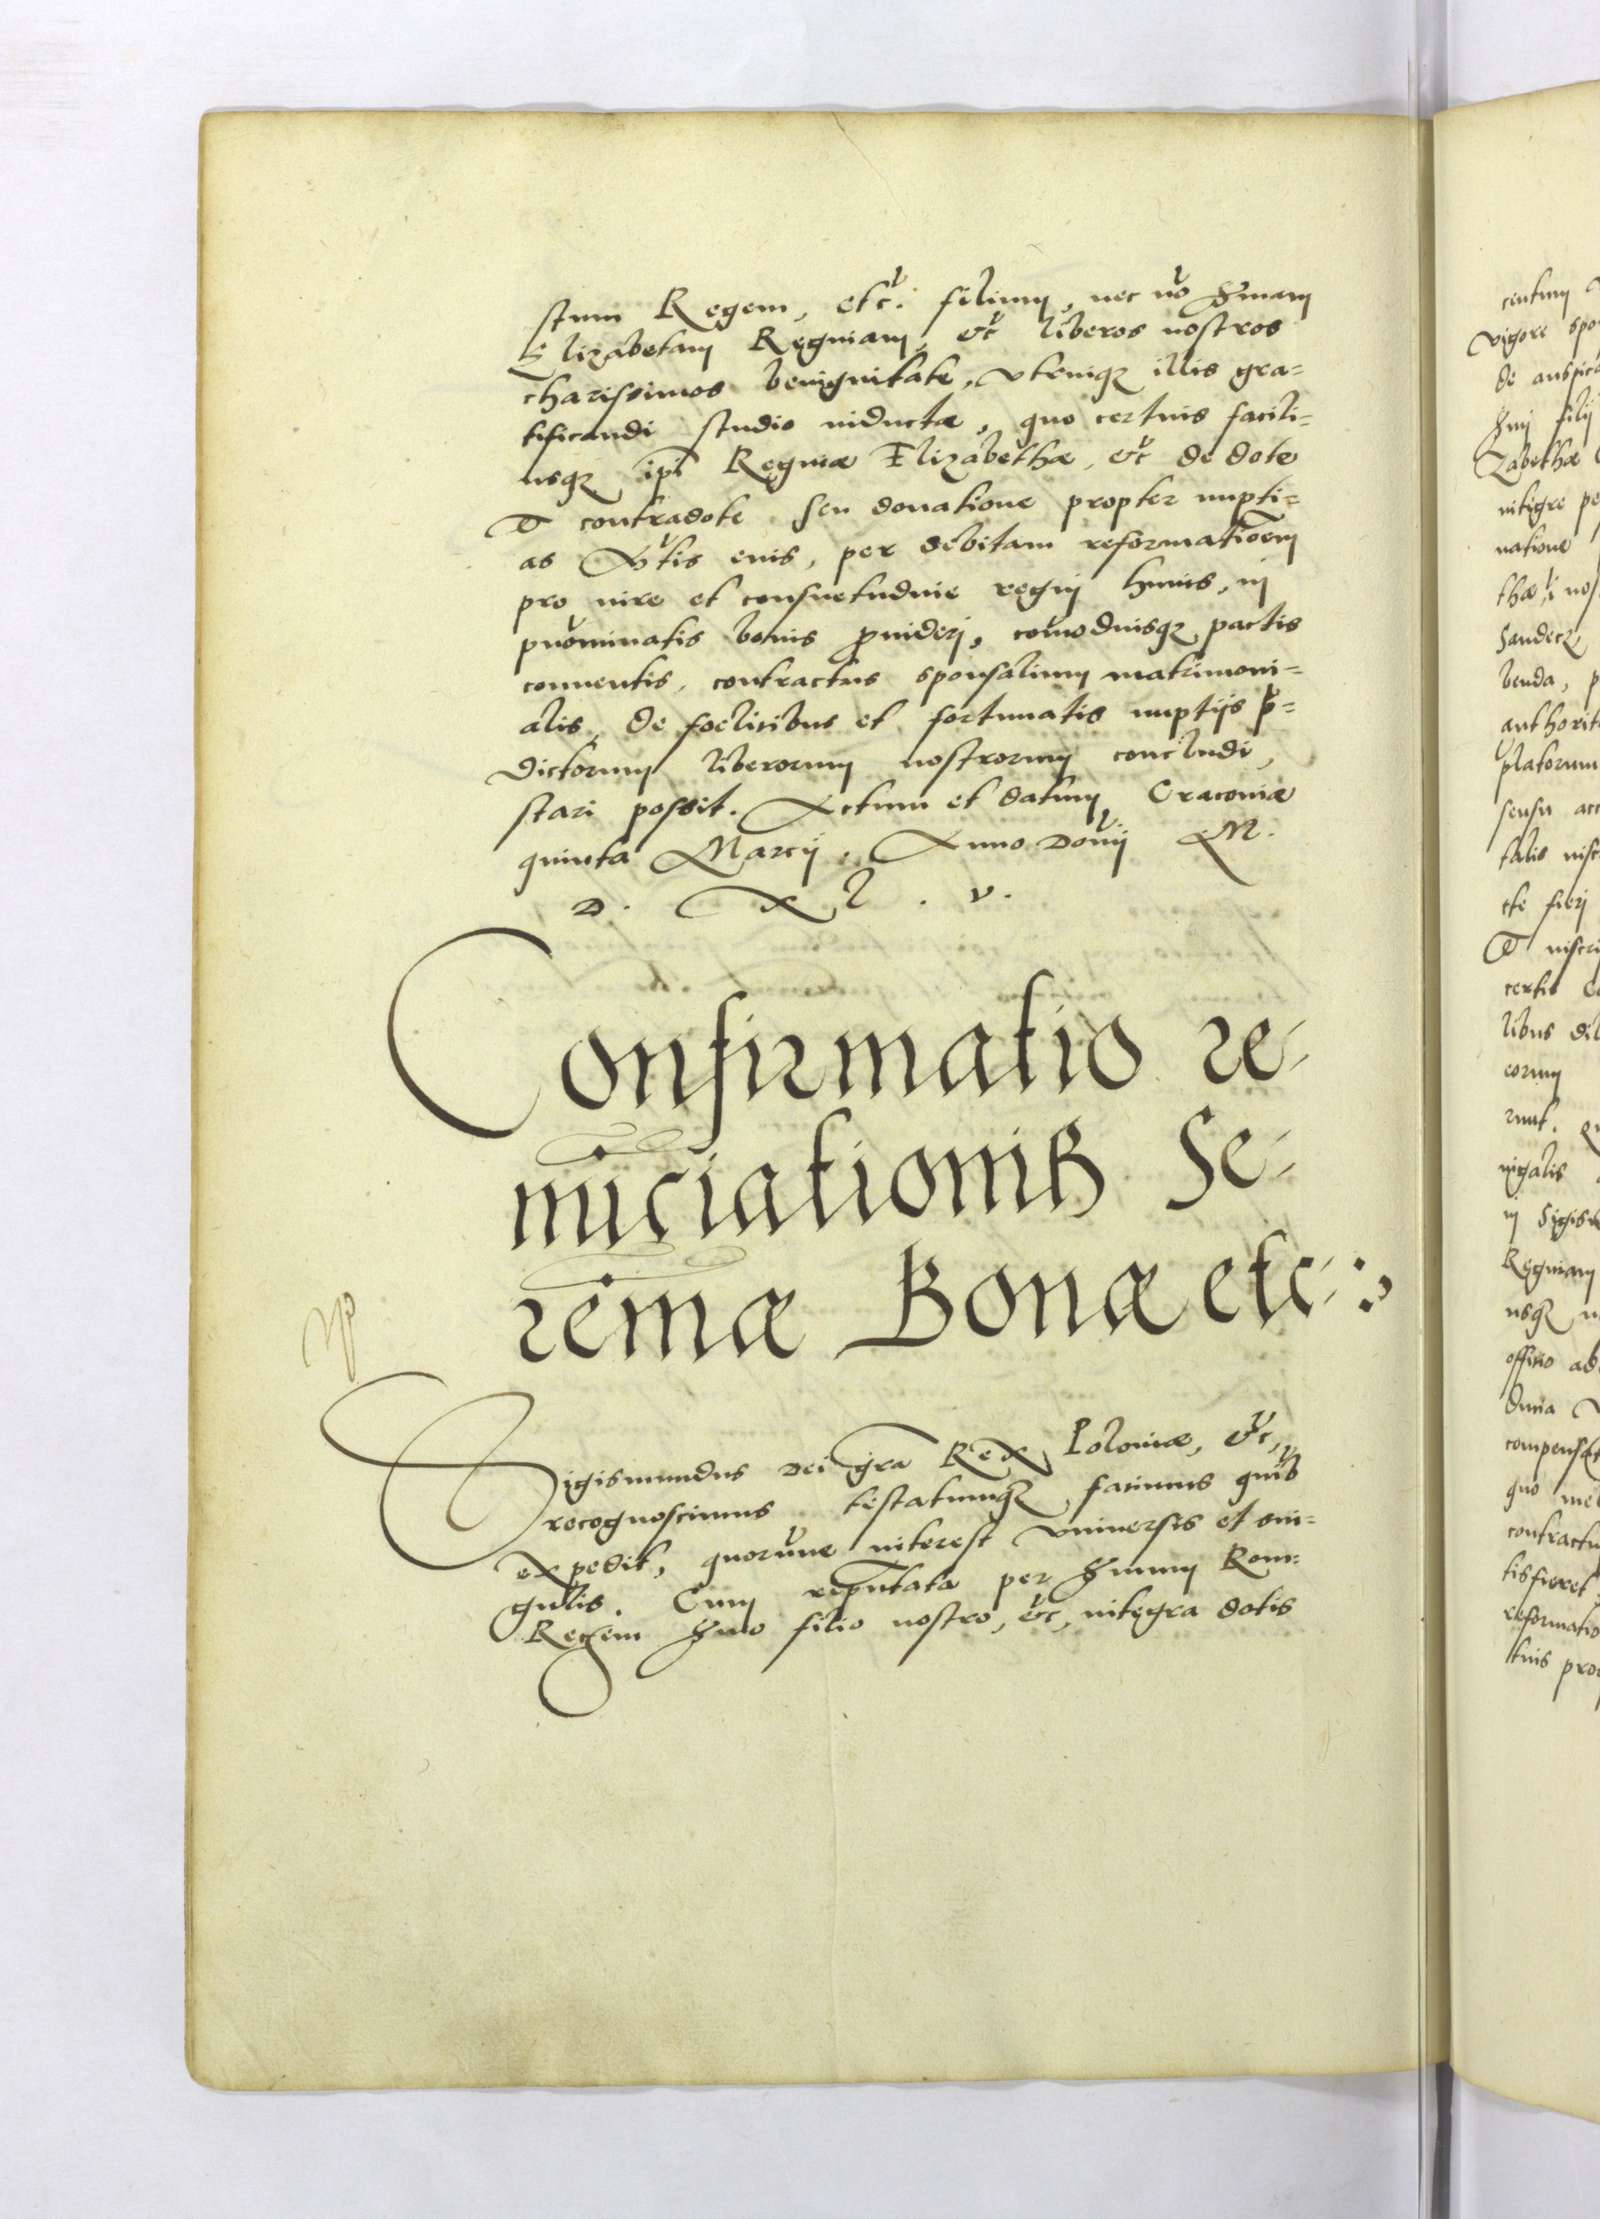 stum Regem, etc. filium, nec nō Smam
Elizabetam Reginam, etc liberos nostros
charissimos benignitate, vtrniqz illis gra=
tificandi studio inductæ, quo certius facili=
usqz ipi Reginæ Elizabethæ, etc de dote
Et contradote seu donatione propter nupti=
as Mtis eius, per debitam reformationem
pro iure et consuetudine regni huius, in
pnominatis bonis prouideri, comodiusqz pactis
conuentis, contractus sponsalium matrimoni=
alis, de foelicibus et fortunatis nuptijs p=
dictorum liberorum nostrorum concludi,
stari possit. Actum et datum Cracouiæ
quinta Marcij. Anno Domi M.
D. XL. v.
Confirmatio re-
nūciationis Se-
remæ Bonæ etc
Sigismundus Dei gra Rex Poloniæ, etc,
recognoscimus testatumqz facimus quib
expedit, quorūue interest vniuersis et sin=
gulis. Cum reputata per Smum Rom:
Regem Smo filio nostro, etc, integra dotis
centum
vigore spo
de auspica
Smi filij
Zabethæ
integre pe
natione
thæ, i nos
Sandecz
benda, p
authorit
platorum
sensu acc
talis insc
cte fieri
Et inscri
certis
libus di
eorum
runt.
nigalis
Reginam
officio ad
compensa
quo mel
contractu
tisfieret
reformatio
tuis pro